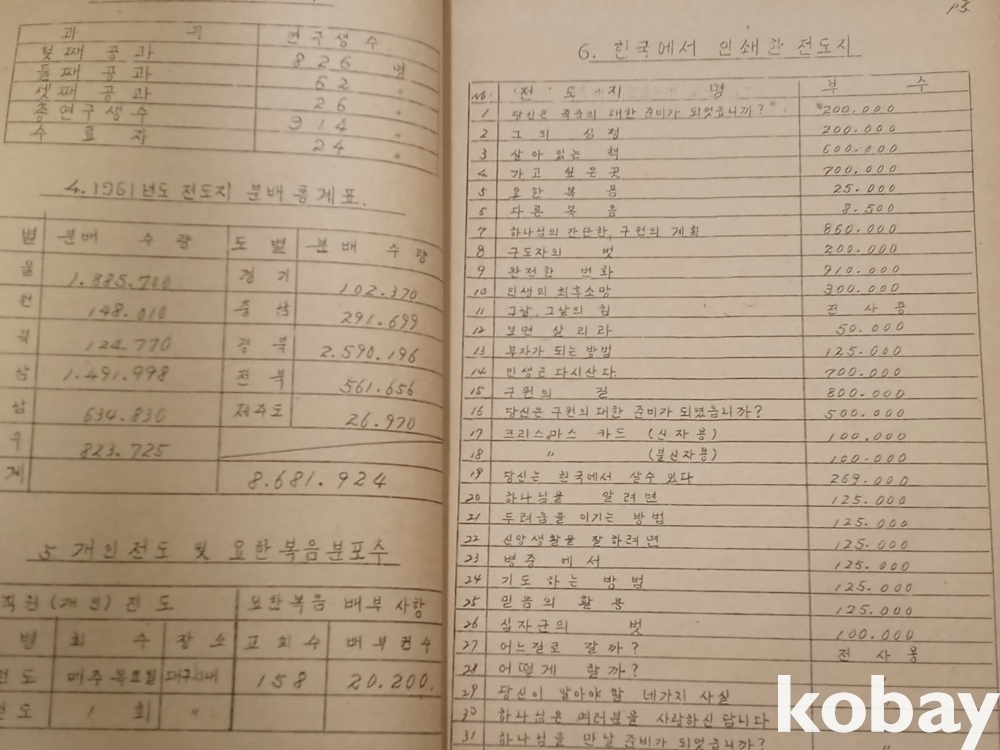 과 목 연구생수
첫째공과 826 명
둘째공과 62 〃
셋째공과 26 〃
총연구생수 914 〃
수료자 24 〃
4. 1961년도 전도지 분배통계표.
별 분배 수량 도별 분배 수량
울 1.885.700 경기 102.370
원 148.010 충남 291.699
북 124.770 경북 2.590.196
남 1.491.998 전북 561.656
남 634.830 제주도 26.970
우 823.725
계 8.681.924
5 개인전도 및 요한복음분포수
직원(개인) 전도 요한복음 배부사항
별 회수 장소 교회수 배부건수
전도 매주목요일 대구시내 158 20.200.
전도 1회 〃
p5
6. 한국에서 인쇄한 전도지
No. 전도지명 부수
1 당신은 죽음의 대한 준비가 되었읍니까? 200.000
2 그의 심정 200.000
3 살아있는 책 600.000
4 가고 싶은 곳 700,000
5 요한복음 25.000
6 다른복음 8.500
7 하나님의 간단한, 구원의 계획 860.000
8 구도자의 벗 200.000
9 완전한 변화 910.000
10 인생의 최후소망 300.000
11 그날.그날의 힘 전사용
12 보면 살리라 50.000
13 부자가 되는 방법 125.000
14 인생은 다시산다. 700.000
15 구원의 길 800.000
16 당신은 구원의 대한 준비가 되였읍니까? 500.000
17 크리스마스 카드 (신자용) 100.000
18 〃 (불신자용) 100.000
19 당신는 한국에서 살수있다 269.000
20 하나님을 알려면 125.000
21 두려움을 이기는 방법 125.000
22 신앙생활을 잘 하려면 125.000
23 병중에서 125.000
24 기도하는 방법 125.000
25 믿음의 활용 125.000
26 십자군의 벗 100.000
27 어느길로 갈까? 전사용
28 어떻게 할까?
29 당신이 알아야할 네가지 사실
30 하나님은 여러분을 사랑하신답니다
31 하나님을 만날 준비가 되었읍니까?
kobay